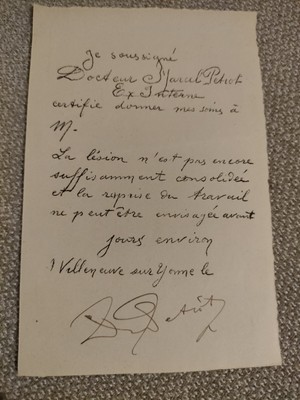 Je soussigné
Docteur Marcel Petiot
Ex Interne
certifie donner mes soins à
M.
La lésion n'est pas encore
suffisamment consolidée
et la reprise du travail
ne peut être envisagée avant
jours environ
Villeneuve sur Yonne le
Dr Petiot